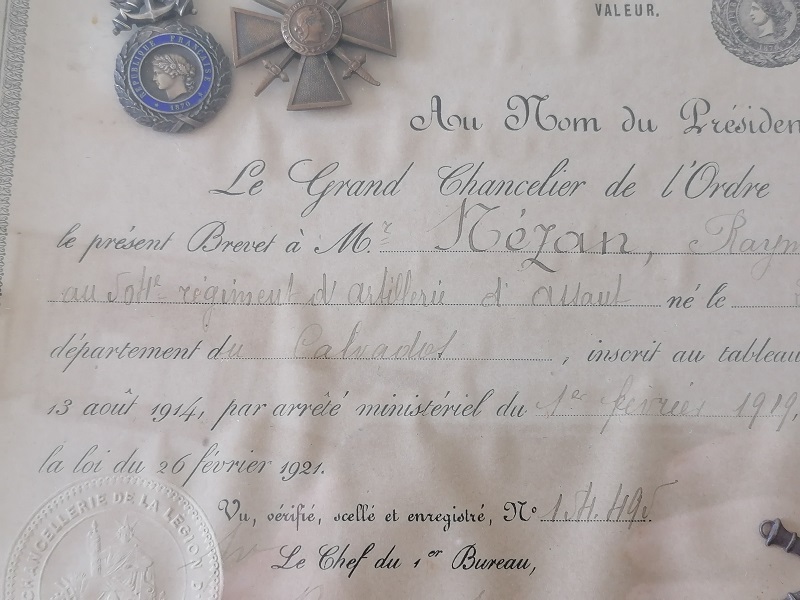 VALEUR.
RÉPUBLIQUE FRANÇAISE
1870
Au Nom du Présiden
Le Grand Chancelier de l'Ordre
le présent Brevet à M.r Nézan, Raym
au 504e régiment d'artillerie d'assaut né le
département du Calvados, inscrit au tableau
13 août 1914, par arrêté ministériel du 1er février 1919,
la loi du 26 février 1921.
Vu, vérifié, scellé et enregistré, No 154.495
CHANCELLERIE DE LA LÉGION D
Le Chef du 1er Bureau,